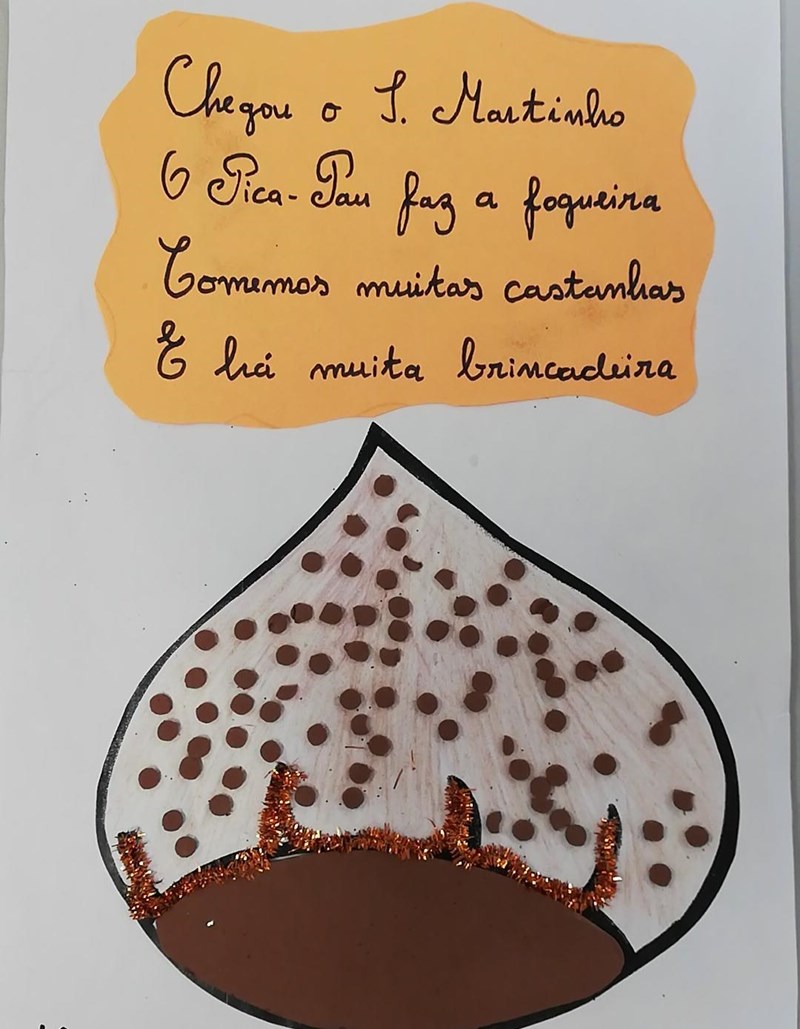 Chegou o S. Martinho
O Pica-Pau faz a fogueira
Comemos muitas castanhas
E há muita brincadeira